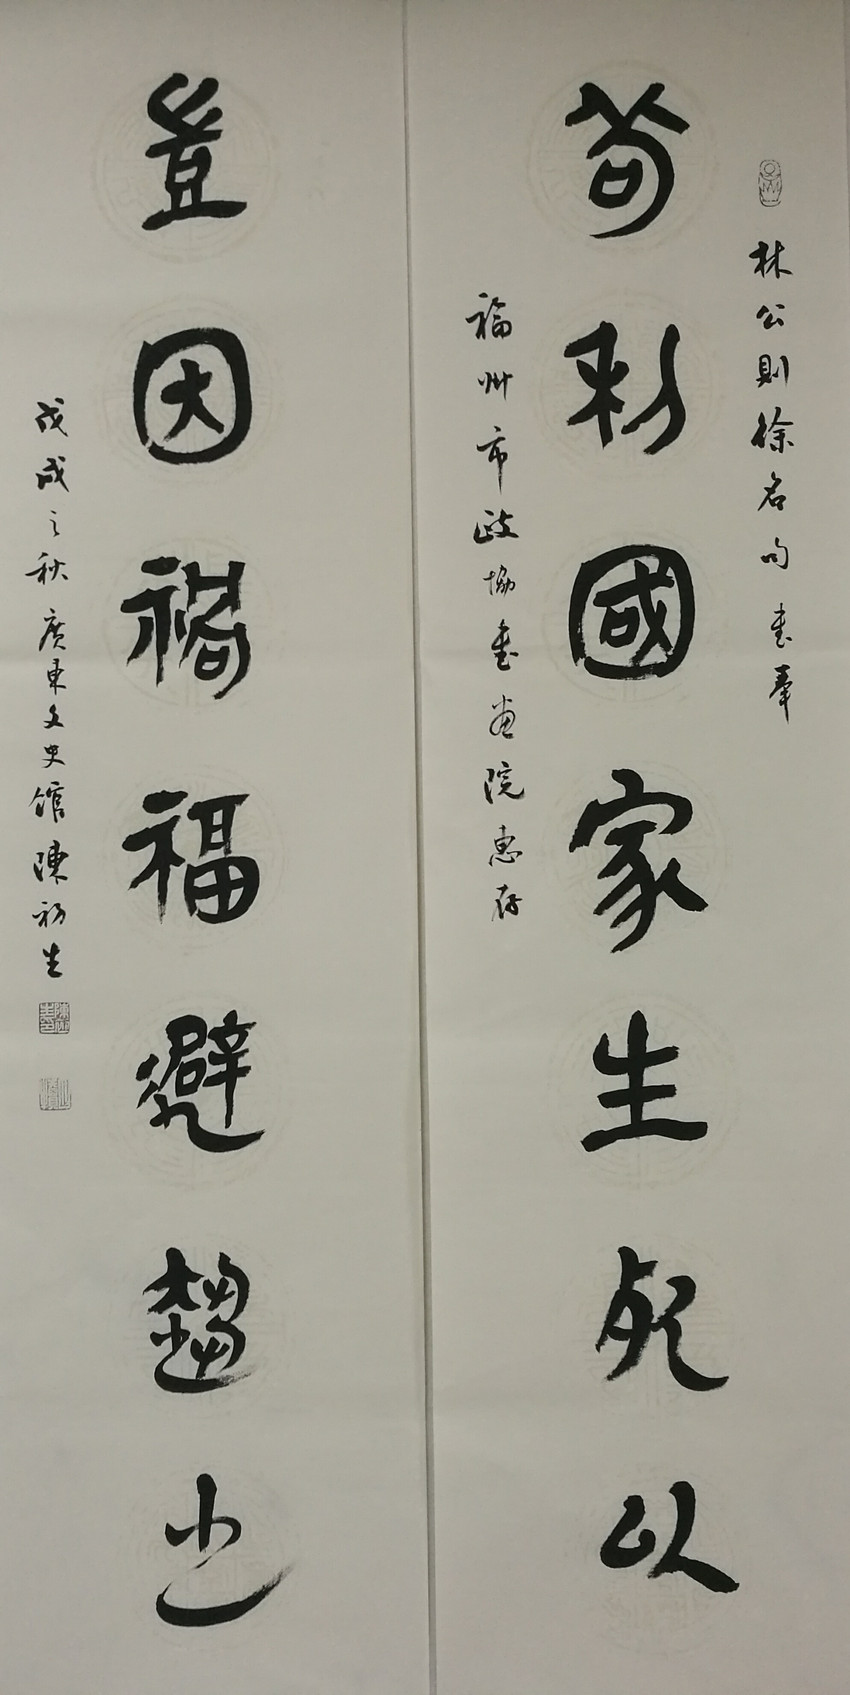 林公則徐名句書奉
苟利國家生死以
福州市政協書畫院惠存
豈因禍福避趨之
戊戌之秋廣東文史館陳初生